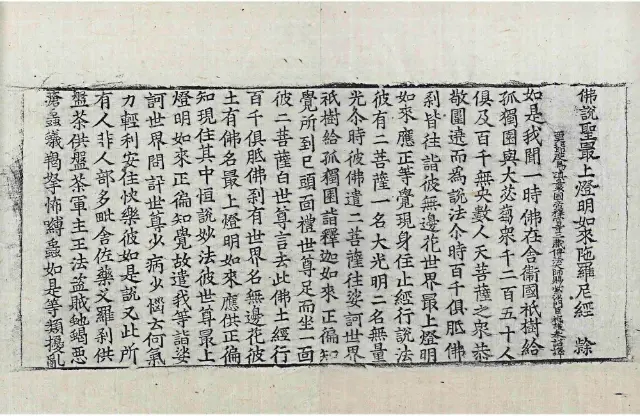 佛說聖㝡上燈明如來陁羅尼經 餘
烏填曩國帝釋宮寺三藏傳法大師賜紫沙門臣施護奉 詔譯
如是我聞一時佛在舍衛國祇樹給
孤獨園與大苾芻衆千二百五十人
俱及百千無央數人天菩薩之衆恭
敬圍遶而為說法尒時百千俱胝佛
剎皆往詣彼無邊花世界㝡上燈明
如來應正等覺現身住止經行說法
彼有二菩薩一名大光明二名無量
光尒時彼佛遣二菩薩往娑訶世界
祇樹給孤獨園詣釋迦如來正徧知
覺所到已頭面禮世尊足而坐一面
彼二菩薩白世尊言去此佛土經行
百千俱胝佛剎有世界名無邊花彼
土有佛名㝡上燈明如來應供正徧
知現住其中恒說妙法彼世尊㝡上
燈明如來正徧知覺故遣我等詣娑
訶世界問訊世尊少病少惱去何氣
力輕利安住快樂彼如是說又此所
有人非人部多毗舍佐藥叉羅剎供
盤茶供盤茶軍主王法盜賊虵蝎惡
蟲蟻鵂孥怖縛蠱如是等類擾亂